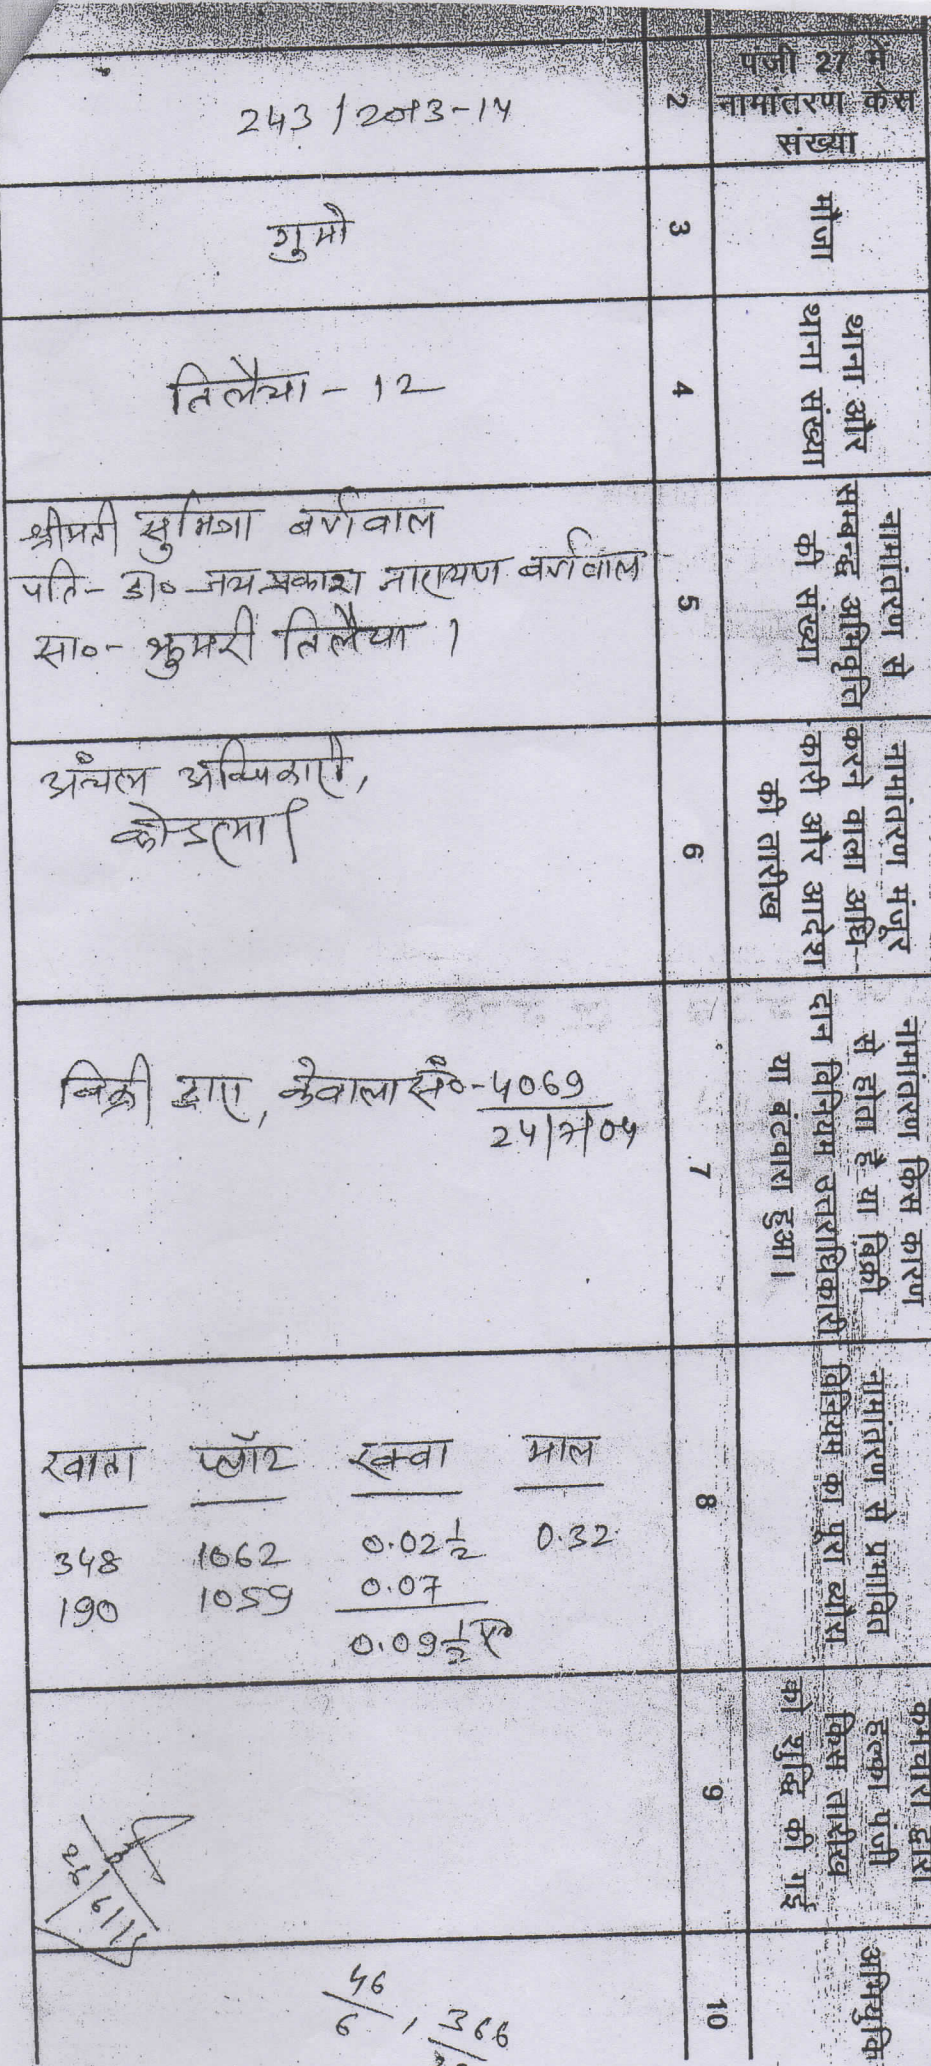 पंजी 27 में
नामांतरण केस
संख्या
2
243/2013-14
मौजा
3
गुमो
थाना और
थाना संख्या
4
तिलैया - 12
नामांतरण से
सम्बन्द्ध अभिवृति
की संख्या
5
श्रीमती सुमित्रा बर्णवाल
पति- डा० जयप्रकाश नारायण बर्णवाल
सा०- झुमरी तिलैया।
नामांतरण मंजूर
करने वाला अधि-
कारी और आदेश
की तारीख
6
अंचल अधिकारी,
कोडरमा।
नामांतरण किस कारण
से होता है या बिक्री
दान विनियम उत्तराधिकारी
या बंटवारा हुआ।
7
बिक्री द्वारा, केवाला सं०-4069
24/7/04
नामांतरण से प्रभावित
विनियम का पूरा ब्योरा
8
खाता प्लॉट रकवा माल
348 1062 0.02 1/2 0.32
190 1059 0.07
0.09 1/2 ए०
कर्मचारी द्वारा
हल्का पंजी
किस तारीख
को शुद्धि की गई
9
अभियुक्ति
10
46
6 , 366